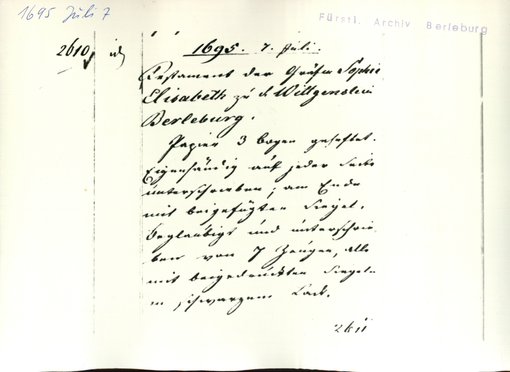 1695 Juli 7
Fürstl. Archiv Berleburg
2610 id
1695. 7. Juli.
Testament der Gräfin Sophie
Elisabeth zu S. Wittgenstein
Berleburg.
Papier 3 bogen geheftet.
Eigenhändig auf jeder Seite
unterschrieben; am Ende
mit beigefügten Siegel.
beglaubigt und unterschrie
ben von 7 Zeugen, alle
mit beigedruckten Siegeln
in schwarzem Lack.